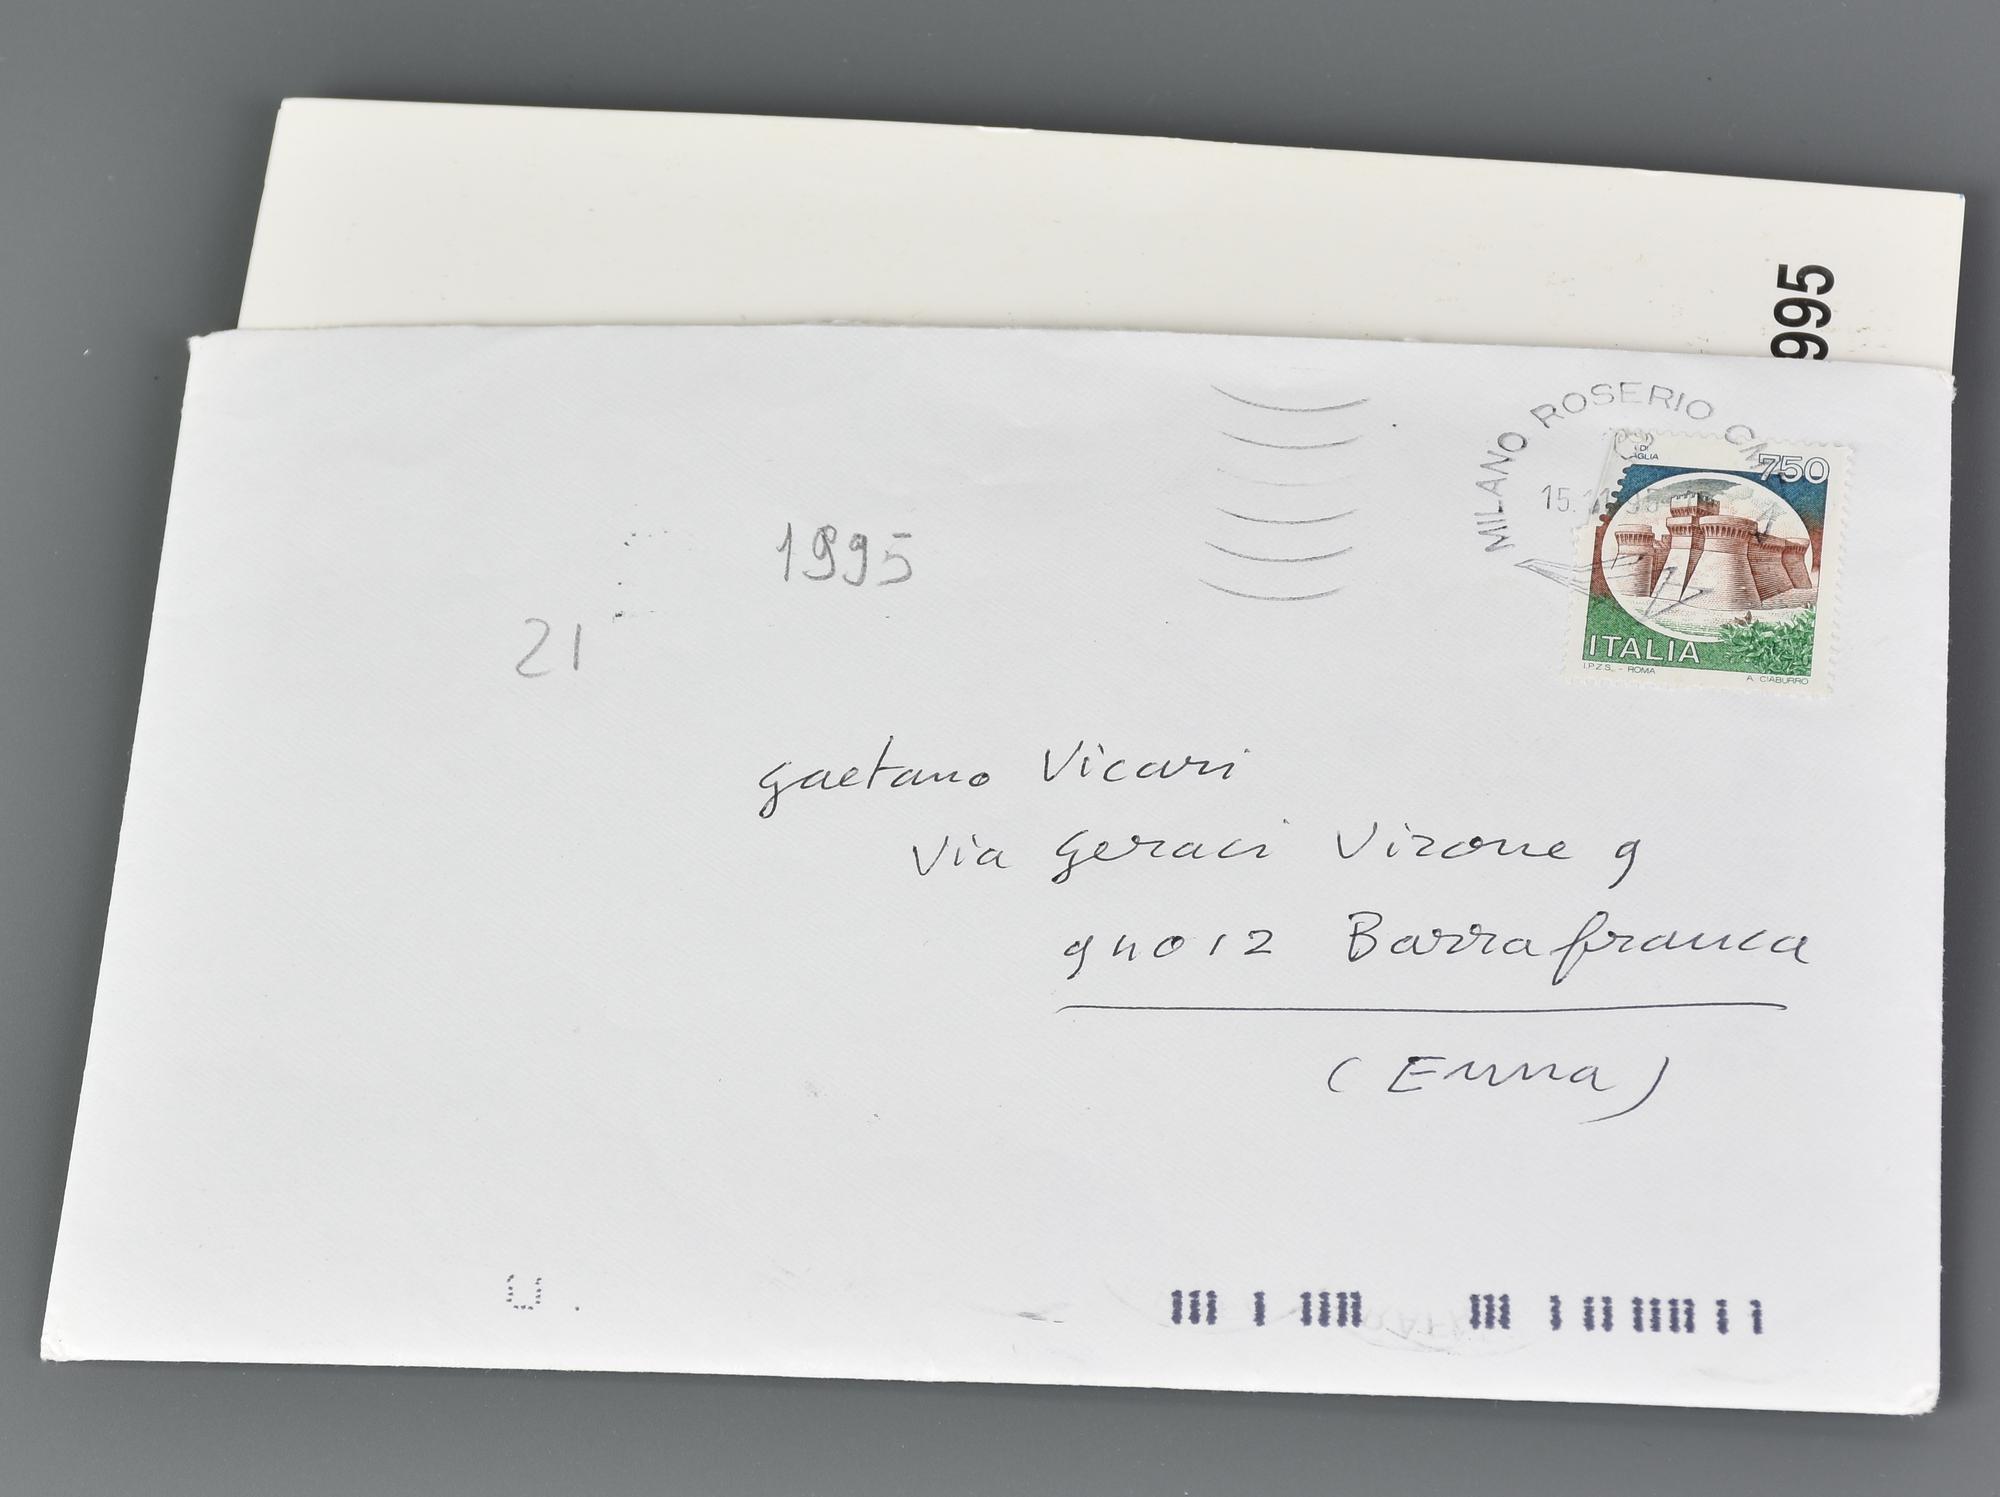 995
MILANO ROSERIO CM
15.11.95
750
ITALIA
I.P.Z.S. - ROMA
A. CIABURRO
1995
21
Gaetano Vicari
Via Geraci Virone 9
94012 Barrafranca
(Enna)
U .